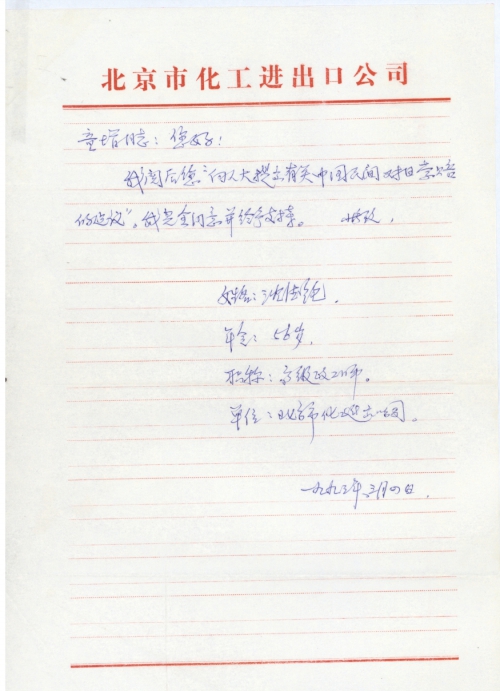 北京市化工进出口公司
童增同志:您好!
我阅后您"向人大提出有关中国民间对日索赔
的建议",我完全同意并给予支持。 此致,
姓名:沈德纯.
年令:56岁.
职称:高级政工师。
单位:北京市化工进出口公司.
一九九三年三月四日.